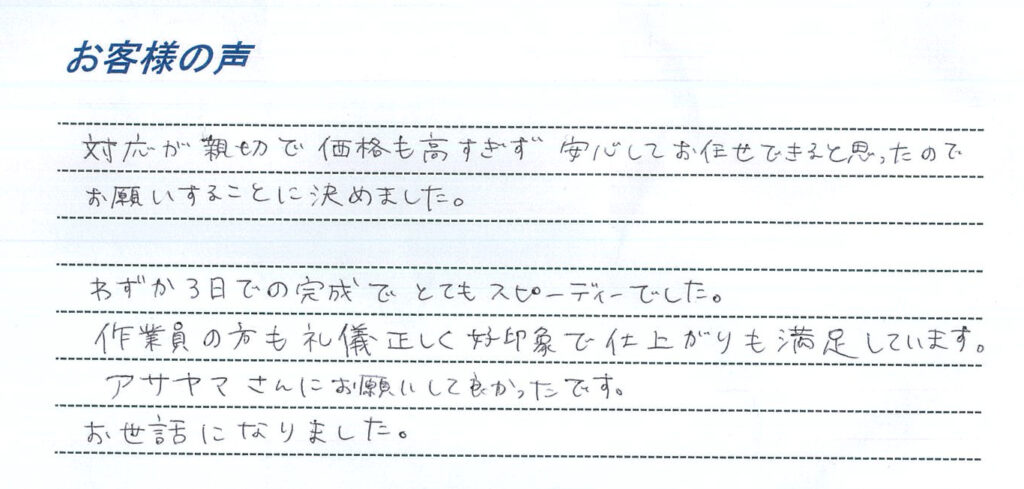 お客様の声
対応が親切で価格も高すぎず 安心してお任せできると思ったので
お願いすることに決めました。
わずか3日での完成でとてもスピーディーでした。
作業員の方も礼儀正しく好印象で仕上がりも満足しています。
アサヤマさんにお願いして良かったです。
お世話になりました。